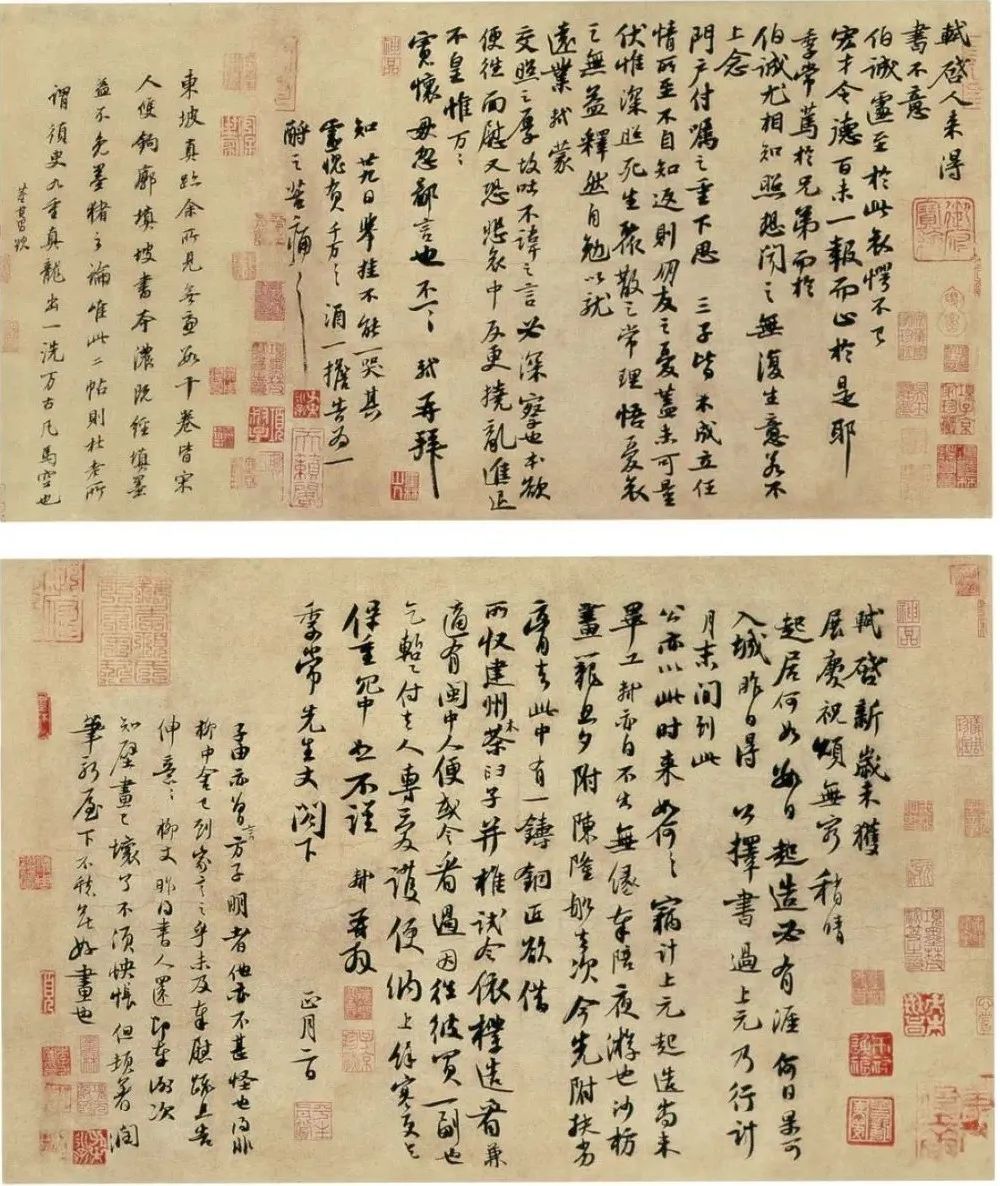 軾啓人来得
書不意
伯誠遽至於此哀愕不已
宏才令德百未一報而止於是耶
季常篤於兄弟而於
伯誠尤相知照想聞之無復生意若不
上念
門戶付囑之重下思三子皆未成立任
情所至不自知返則朋友之憂蓋未可量
伏惟深照死生聚散之常理悟憂哀
之無益釋然自勉以就
遠業軾蒙
交照之厚故吐不諱之言必深察也本欲
便往面慰又恐悲哀中反更撓亂進退
不皇惟万々
寬懷毋忽鄙言也不一々軾再拜
知廿九日舉掛不能一哭其
靈愧負千万々酒一擔告為一
酹之苦痛々々
東坡真跡余所見無慮數十卷皆宋
人雙鉤廓填坡書本濃既經填墨
益不免墨豬之論唯此二帖則杜老所
謂須臾九重真龍出一洗万古凡馬空也
董其昌題
軾啓新歲未獲
展慶祝頌無窮稍晴
起居何如數日起造必有涯何日果可
入城昨日得公擇書過上元乃行計
月末間到此
公亦以此时来如何々竊計上元起造尚未
畢工軾亦自不出無緣奉陪夜游也沙枋
畫籠旦夕附陳隆船去次今先附扶劣
膏去此中有一鑄銅匠欲借
所收建州木茶臼子并椎試令依樣造看兼
適有閩中人便或令看過因往彼買一副也
乞暫付去人專愛護便納上餘寒更乞
保重冗中恕不謹軾再拜
季常先生丈閣下正月二日
子由亦曾言方子明者他亦不甚怪也得非
柳中舍已到家言之乎未及奉慰疏且告
伸意々柳丈昨得書人還即奉謝次
知壁畫已壞了不須怏悵但頓著潤
筆新屋下不愁無好畫也